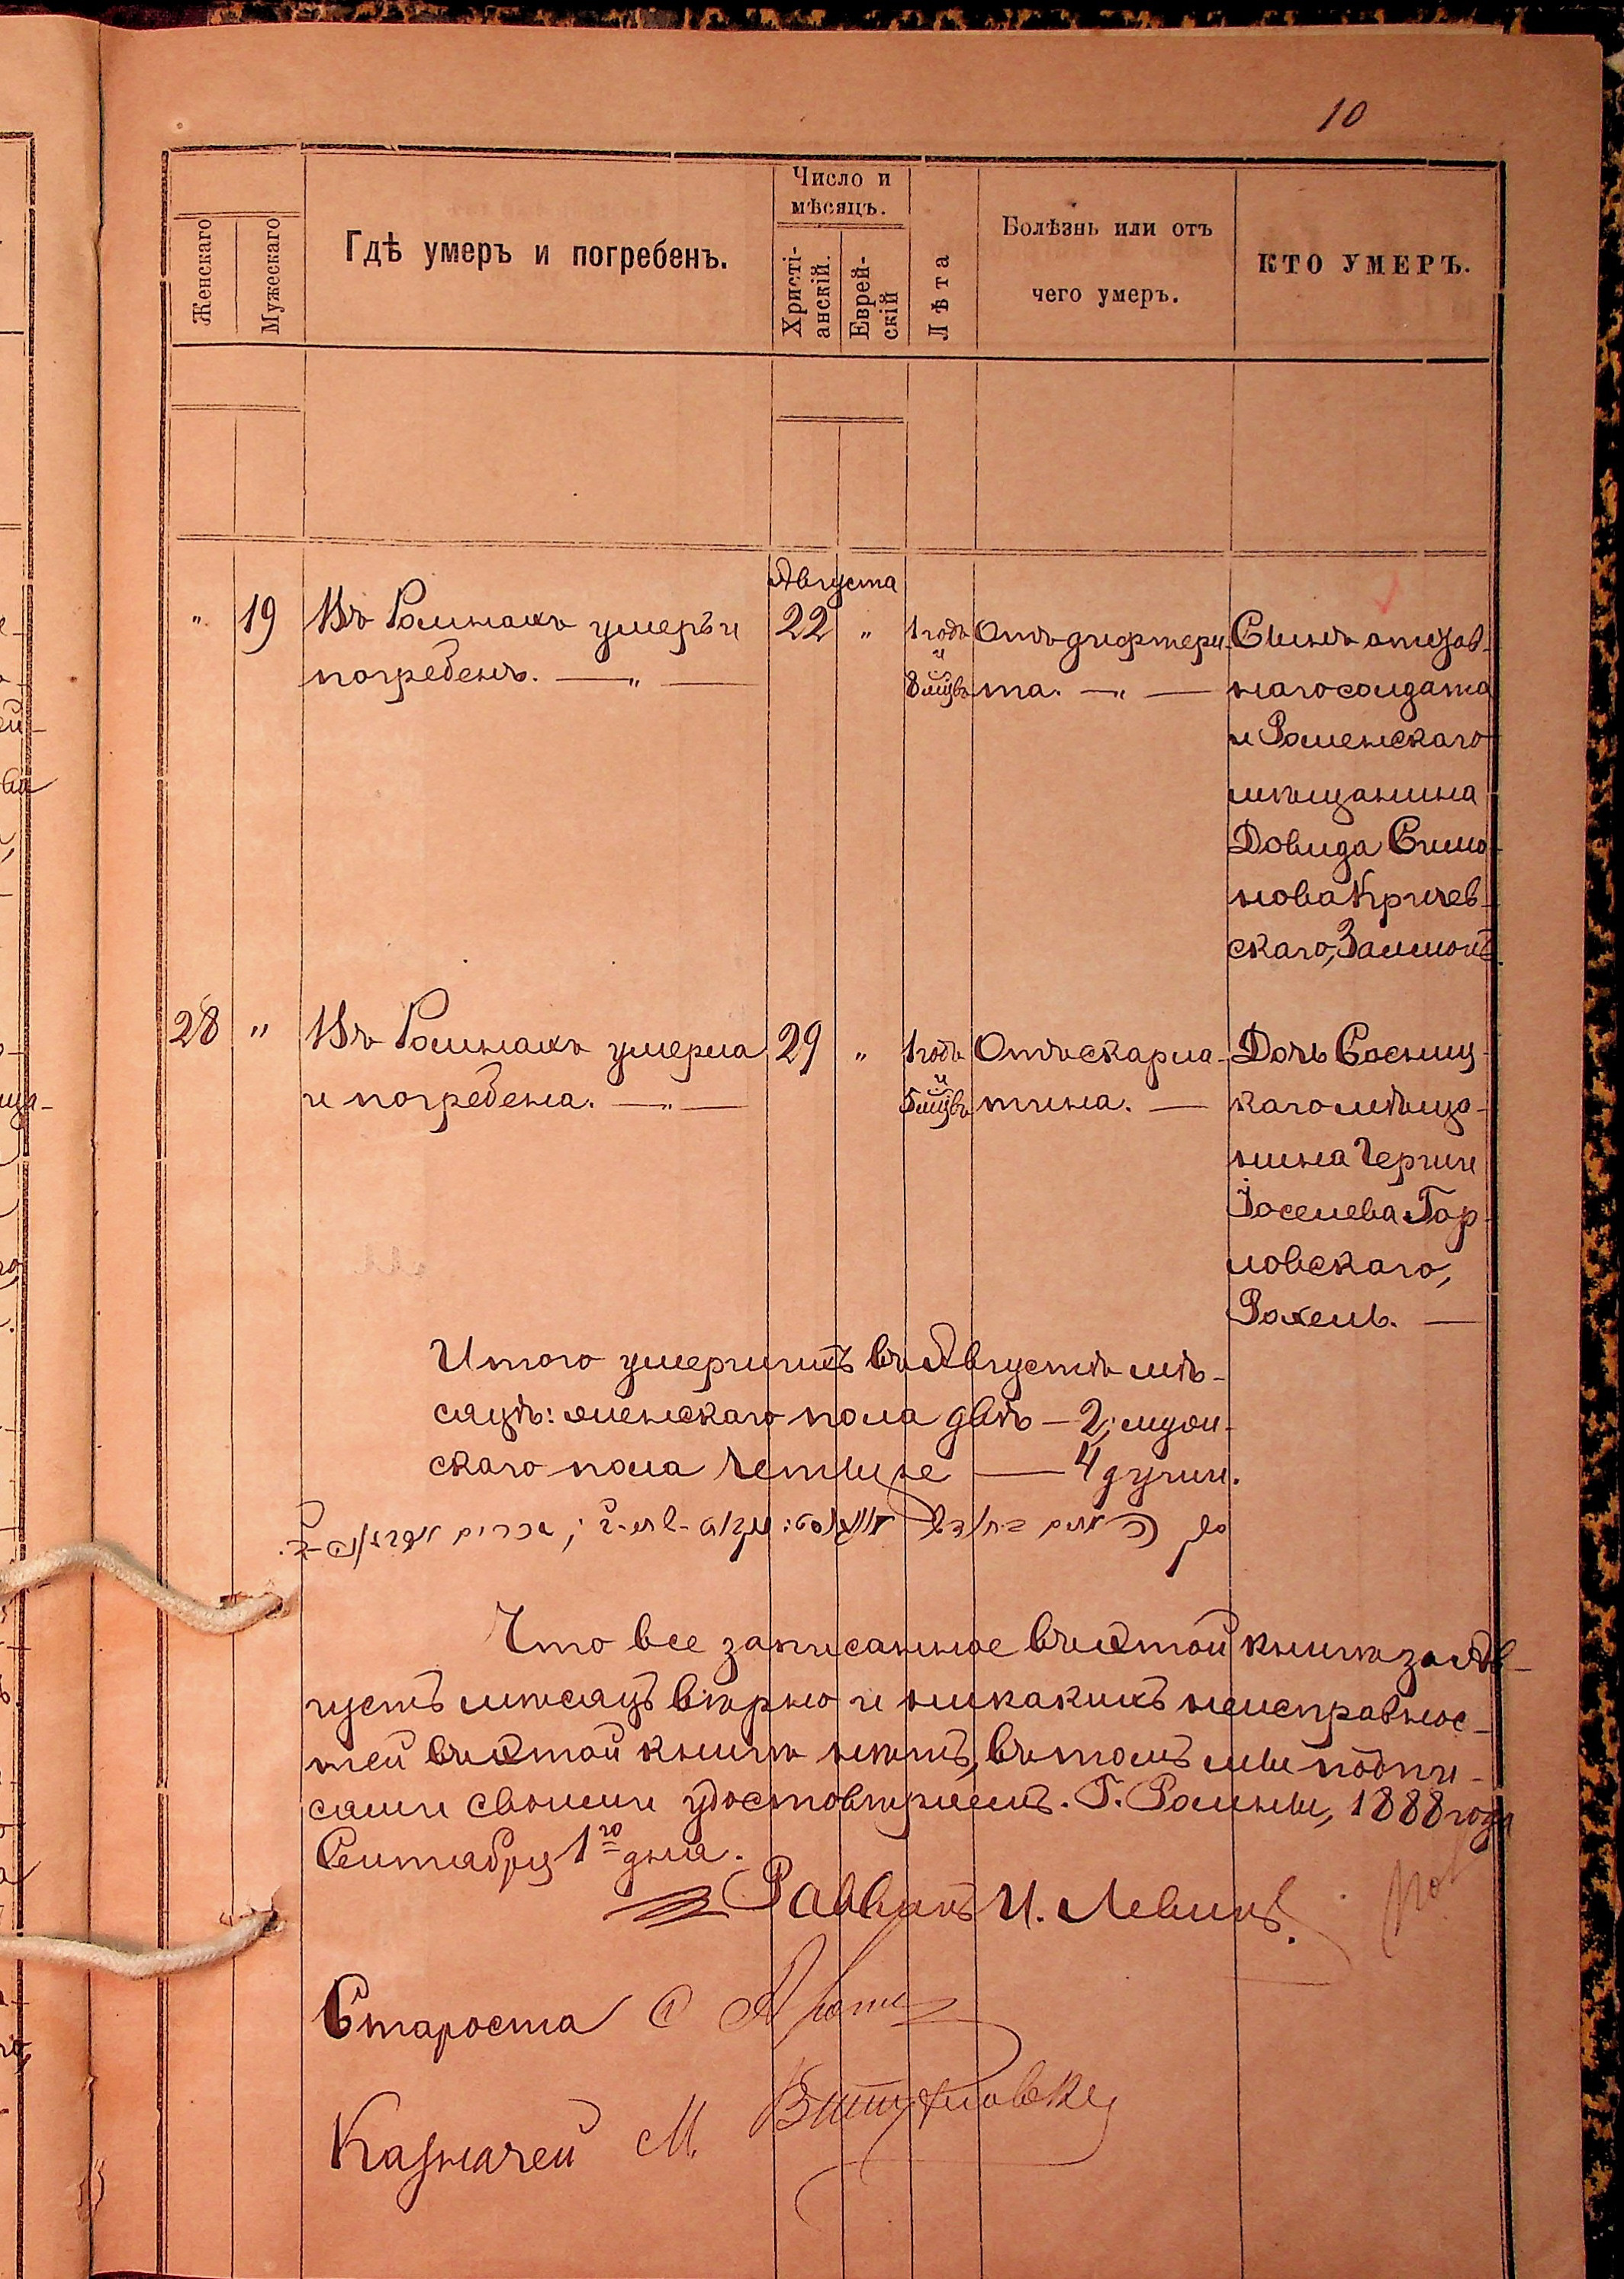 10
Женскаго
Мужескаго
Гдѣ умеръ и погребенъ.
Число и
мѣсяцъ.
Христі-
анскій.
Еврей-
скій
Лѣта
Болѣзнь или отъ
чего умеръ.
КТО УМЕРЪ.
Августа
" 19 Въ Ромнахъ умеръ и
погребенъ. — „ —
22 "
1 годъ
и
8 мцвъ
Отъ дифтери-
та. — „ —
Сынъ отстав-
наго солдата
и Роменскаго
мѣщанина
Довида Симо-
нова Кричев-
скаго, Залмонъ
28 " Въ Ромнахъ умерла
и погребена. — „ —
29 "
1 годъ
и
5 мцвъ
Отъ скарла-
тина. —
Дочь Сосниц-
каго мѣща-
нина Герши
Іоселева Гор-
ловскаго,
Рохель. —
Итого умершихъ въ Августѣ мѣ-
сяцѣ: женскаго пола двѣ — 2; муж-
скаго пола четыре — 4 души.
Что все записанное въ этой книгѣ за Ав-
густъ мѣсяцъ вѣрно и никакихъ неисправнос-
тей въ этой книгѣ нѣтъ, въ томъ мы подпи-
сами своими удостовѣряемъ. Г. Ромны, 1888 года
Сентября 1го дня.
Раввинъ И. Левинъ.
Староста
Казначей М.